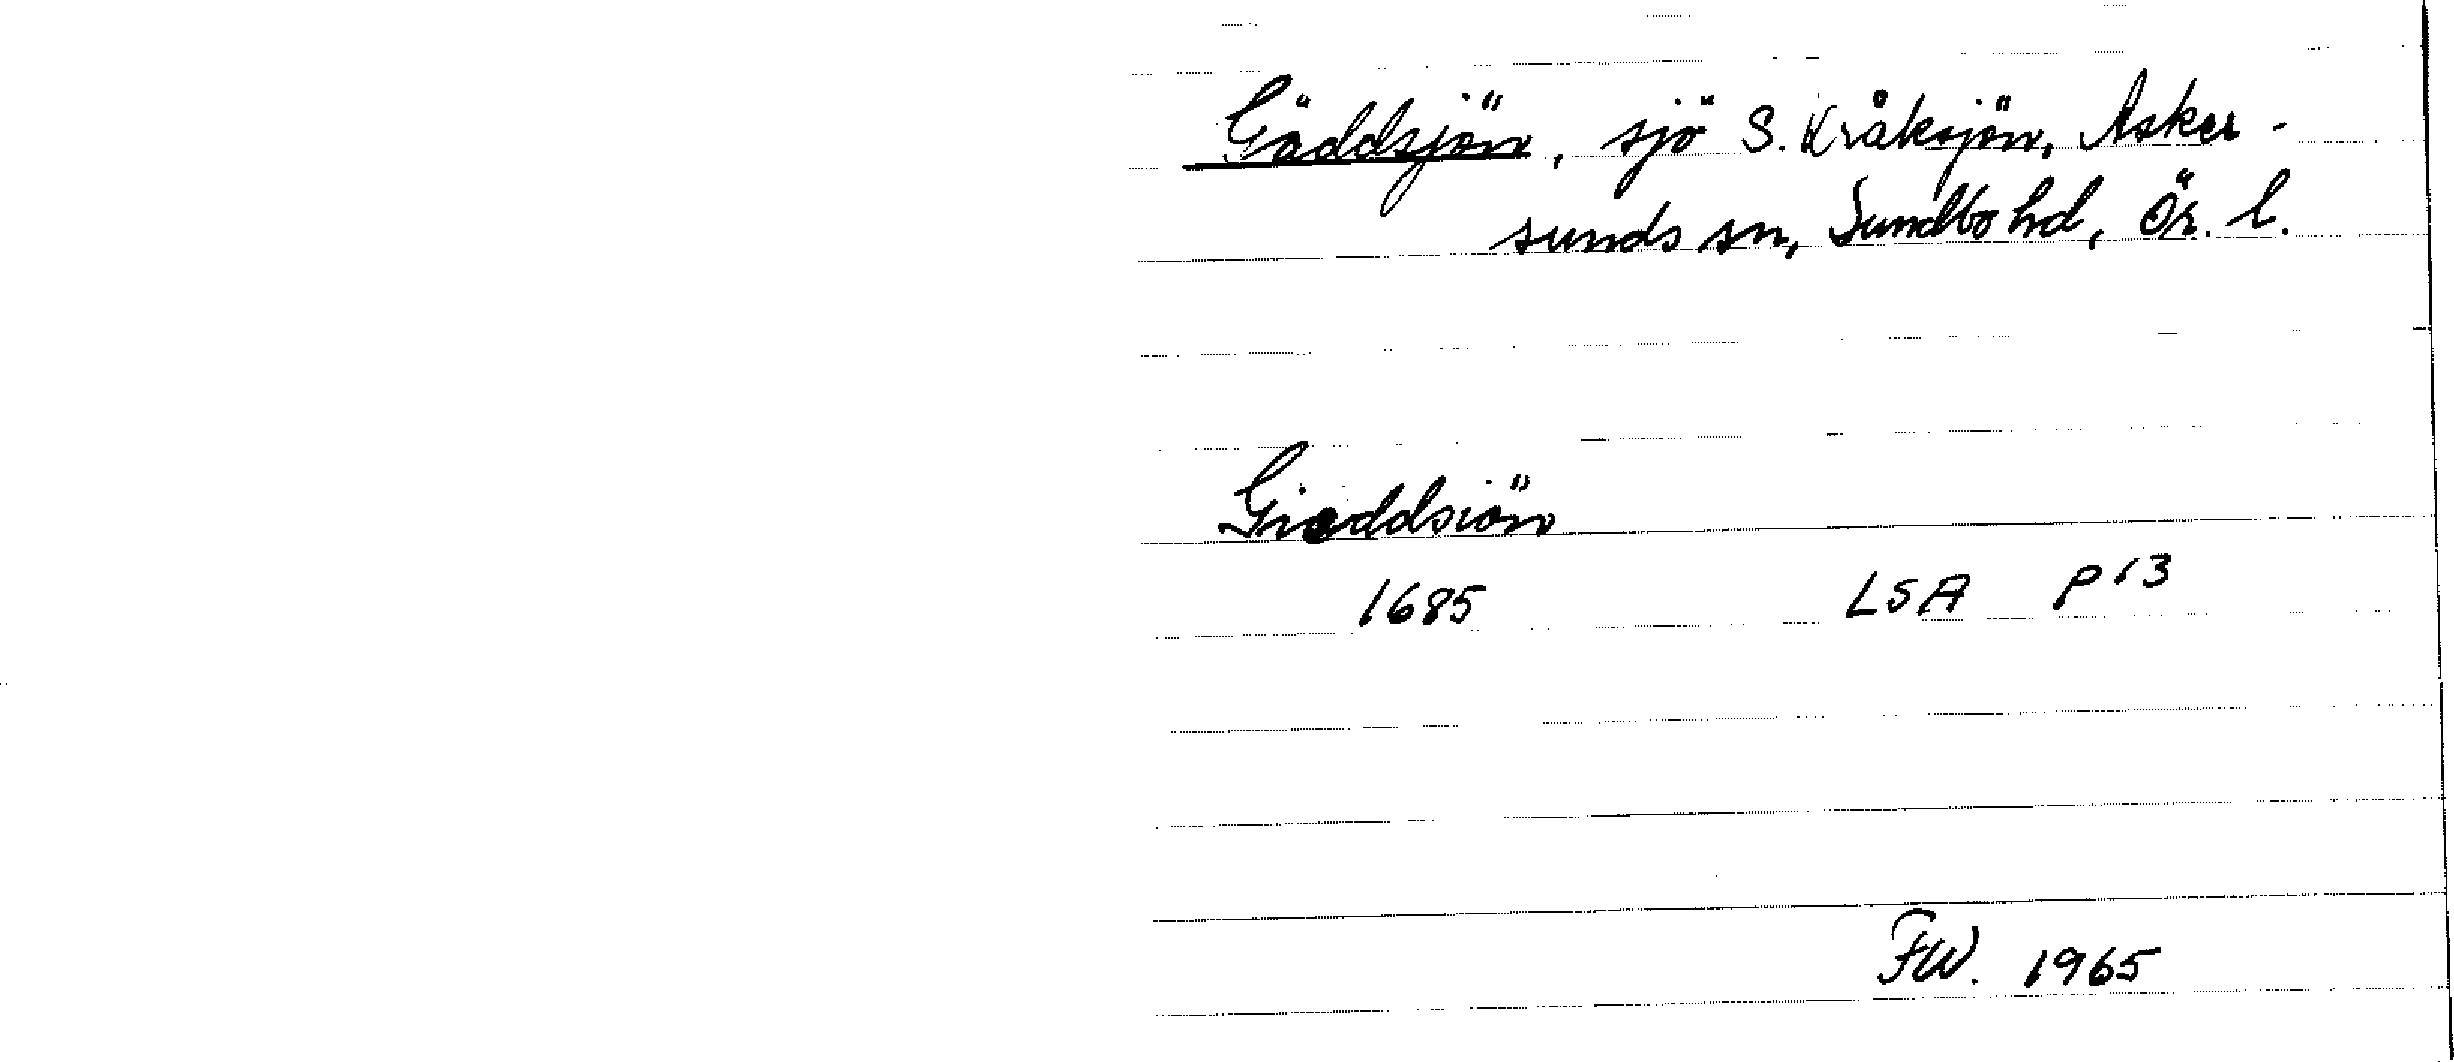 Gäddsjön, sjö S. Kråksjön, Asker-
sunds sn, Sundbo hd, Ör. l.
Gieddsiön
1685 LSA P 13
FW. 1965